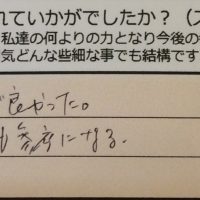 れていかがでしたか？（ス
私達の何よりの力となり今後の
気どんな些細な事でも結構です
良かった。
参考になる.